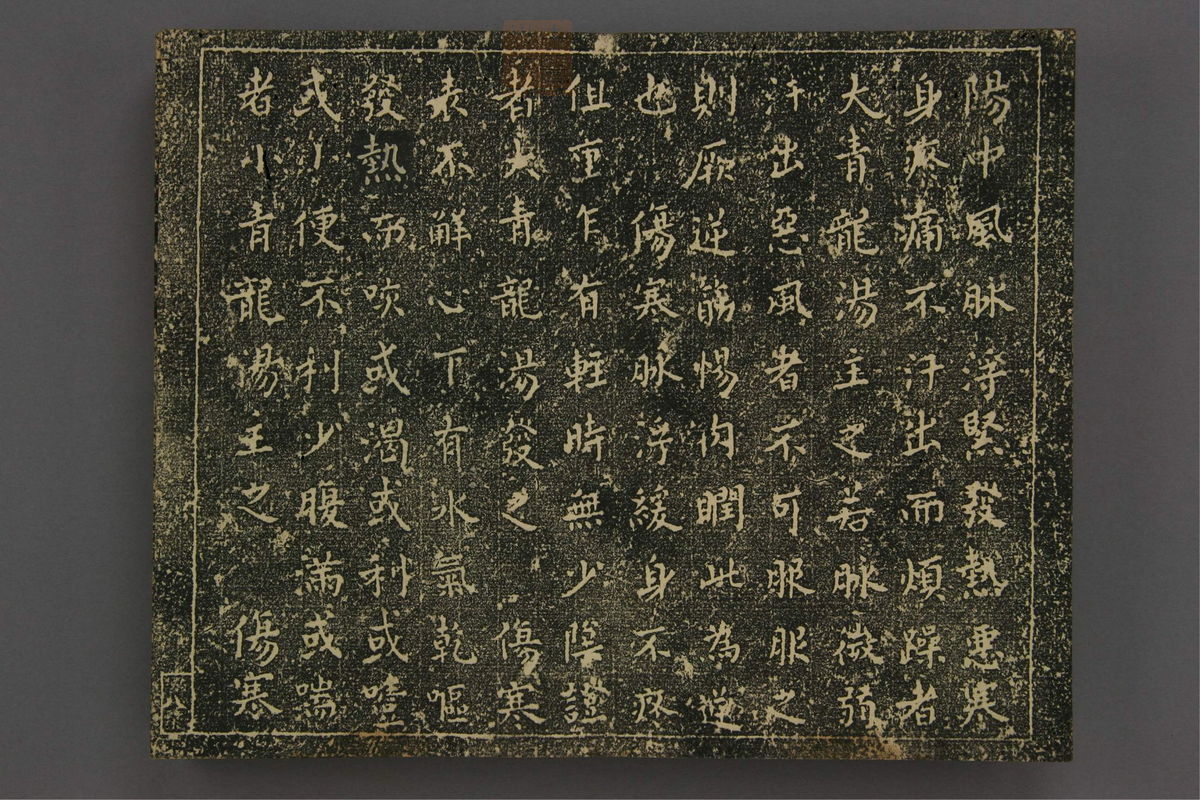 陽中風脉浮緊發熱惡寒
身疼痛不汗出而煩躁者
大青龍湯主之若脉微弱
汗出惡風者不可服服之
則厥逆筋惕肉瞤此為逆
也　傷寒脉浮緩身不疼
但重乍有輕時無少陰證
者大青龍湯發之　傷寒
表不解心下有水氣乾嘔
發熱而咳或渴或利或噎
或小便不利少腹滿或喘
者小青龍湯主之　傷寒